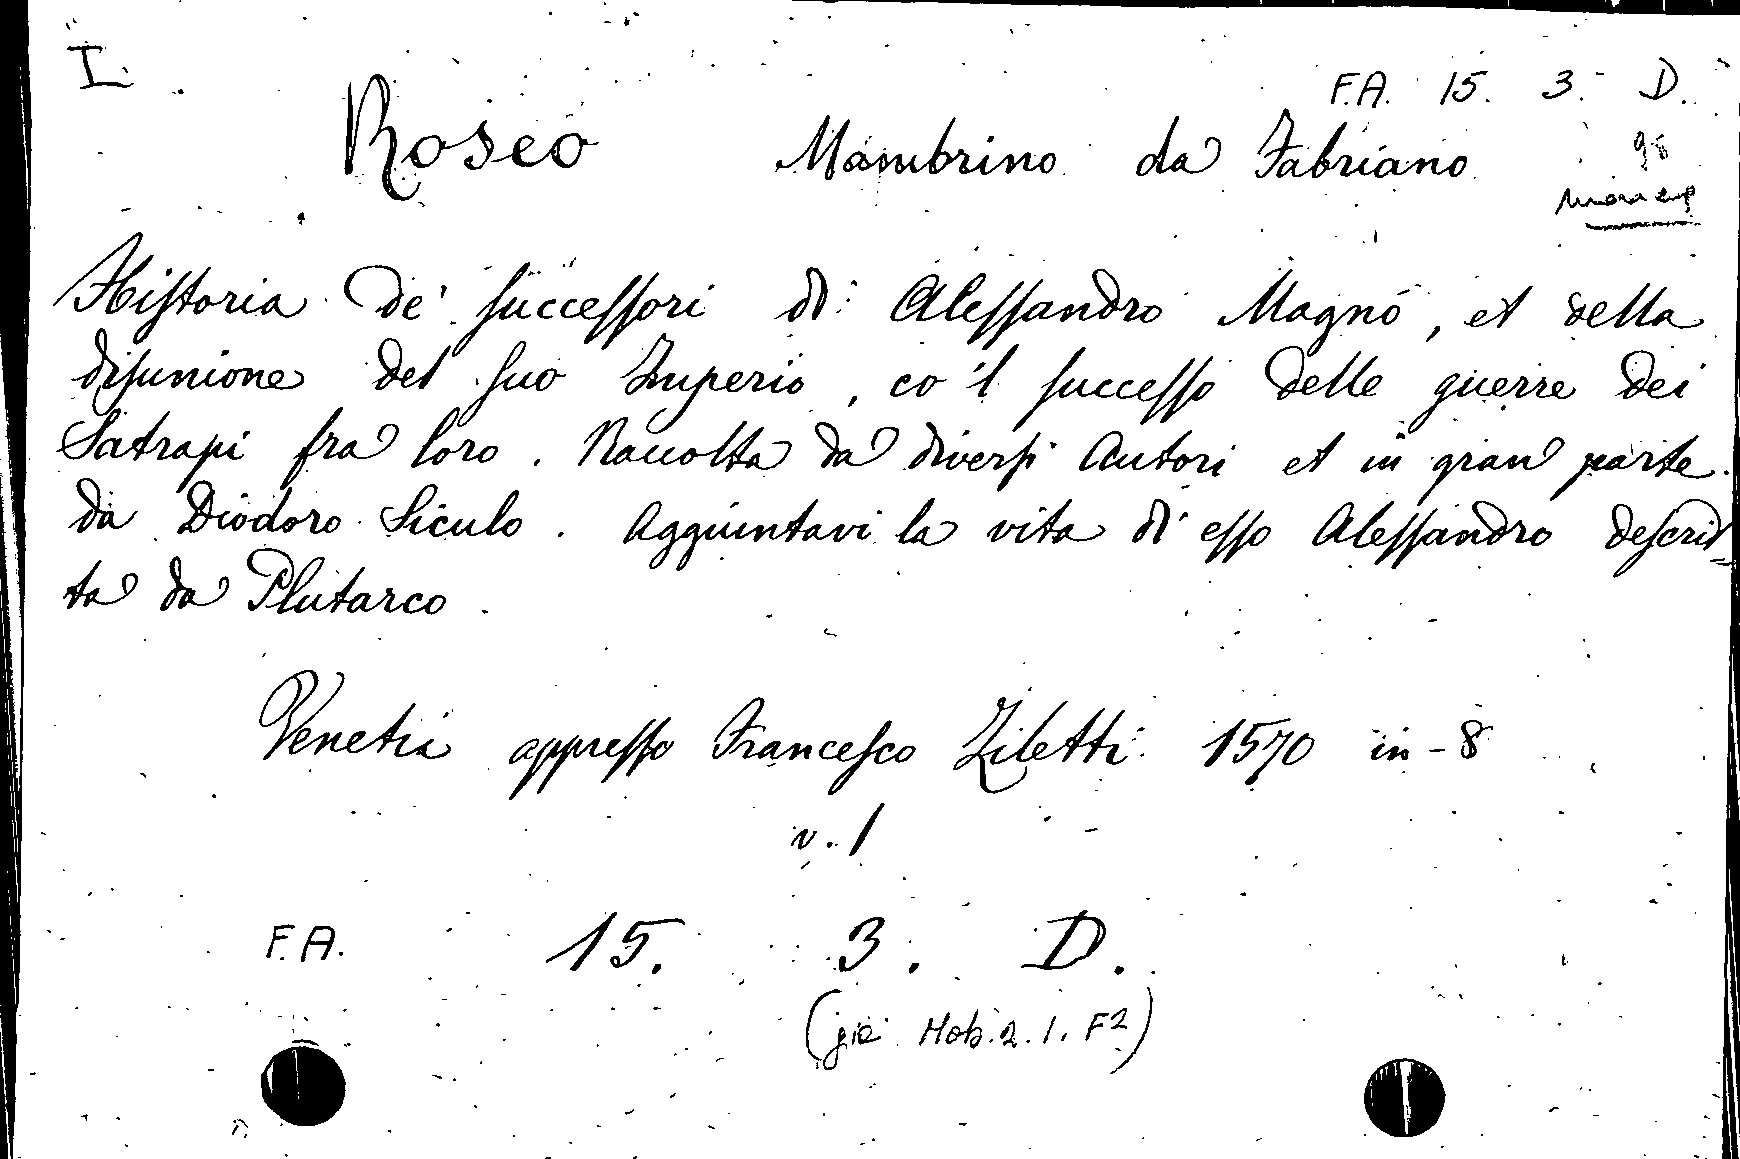 I.
F.A. 15. 3. D.
Roseo Mambrino da Fabriano
98
Hiſtoria de' ſucceſſori di Aleſſandro Magno, et della
diſunione del ſuo Imperio, co'l ſucceſſo delle guerre dei
Satrapi fra loro. Raccolta da diverſi Autori et in gran parte
da Diodoro Siculo. Aggiuntavi la vita di eſſo Aleſſandro deſcrit=
ta da Plutarco.
Venetia appreſſo Franceſco Ziletti 1570 in-8
v. 1
F.A. 15. 3. D.
(già Mob. 2. 1. F2)